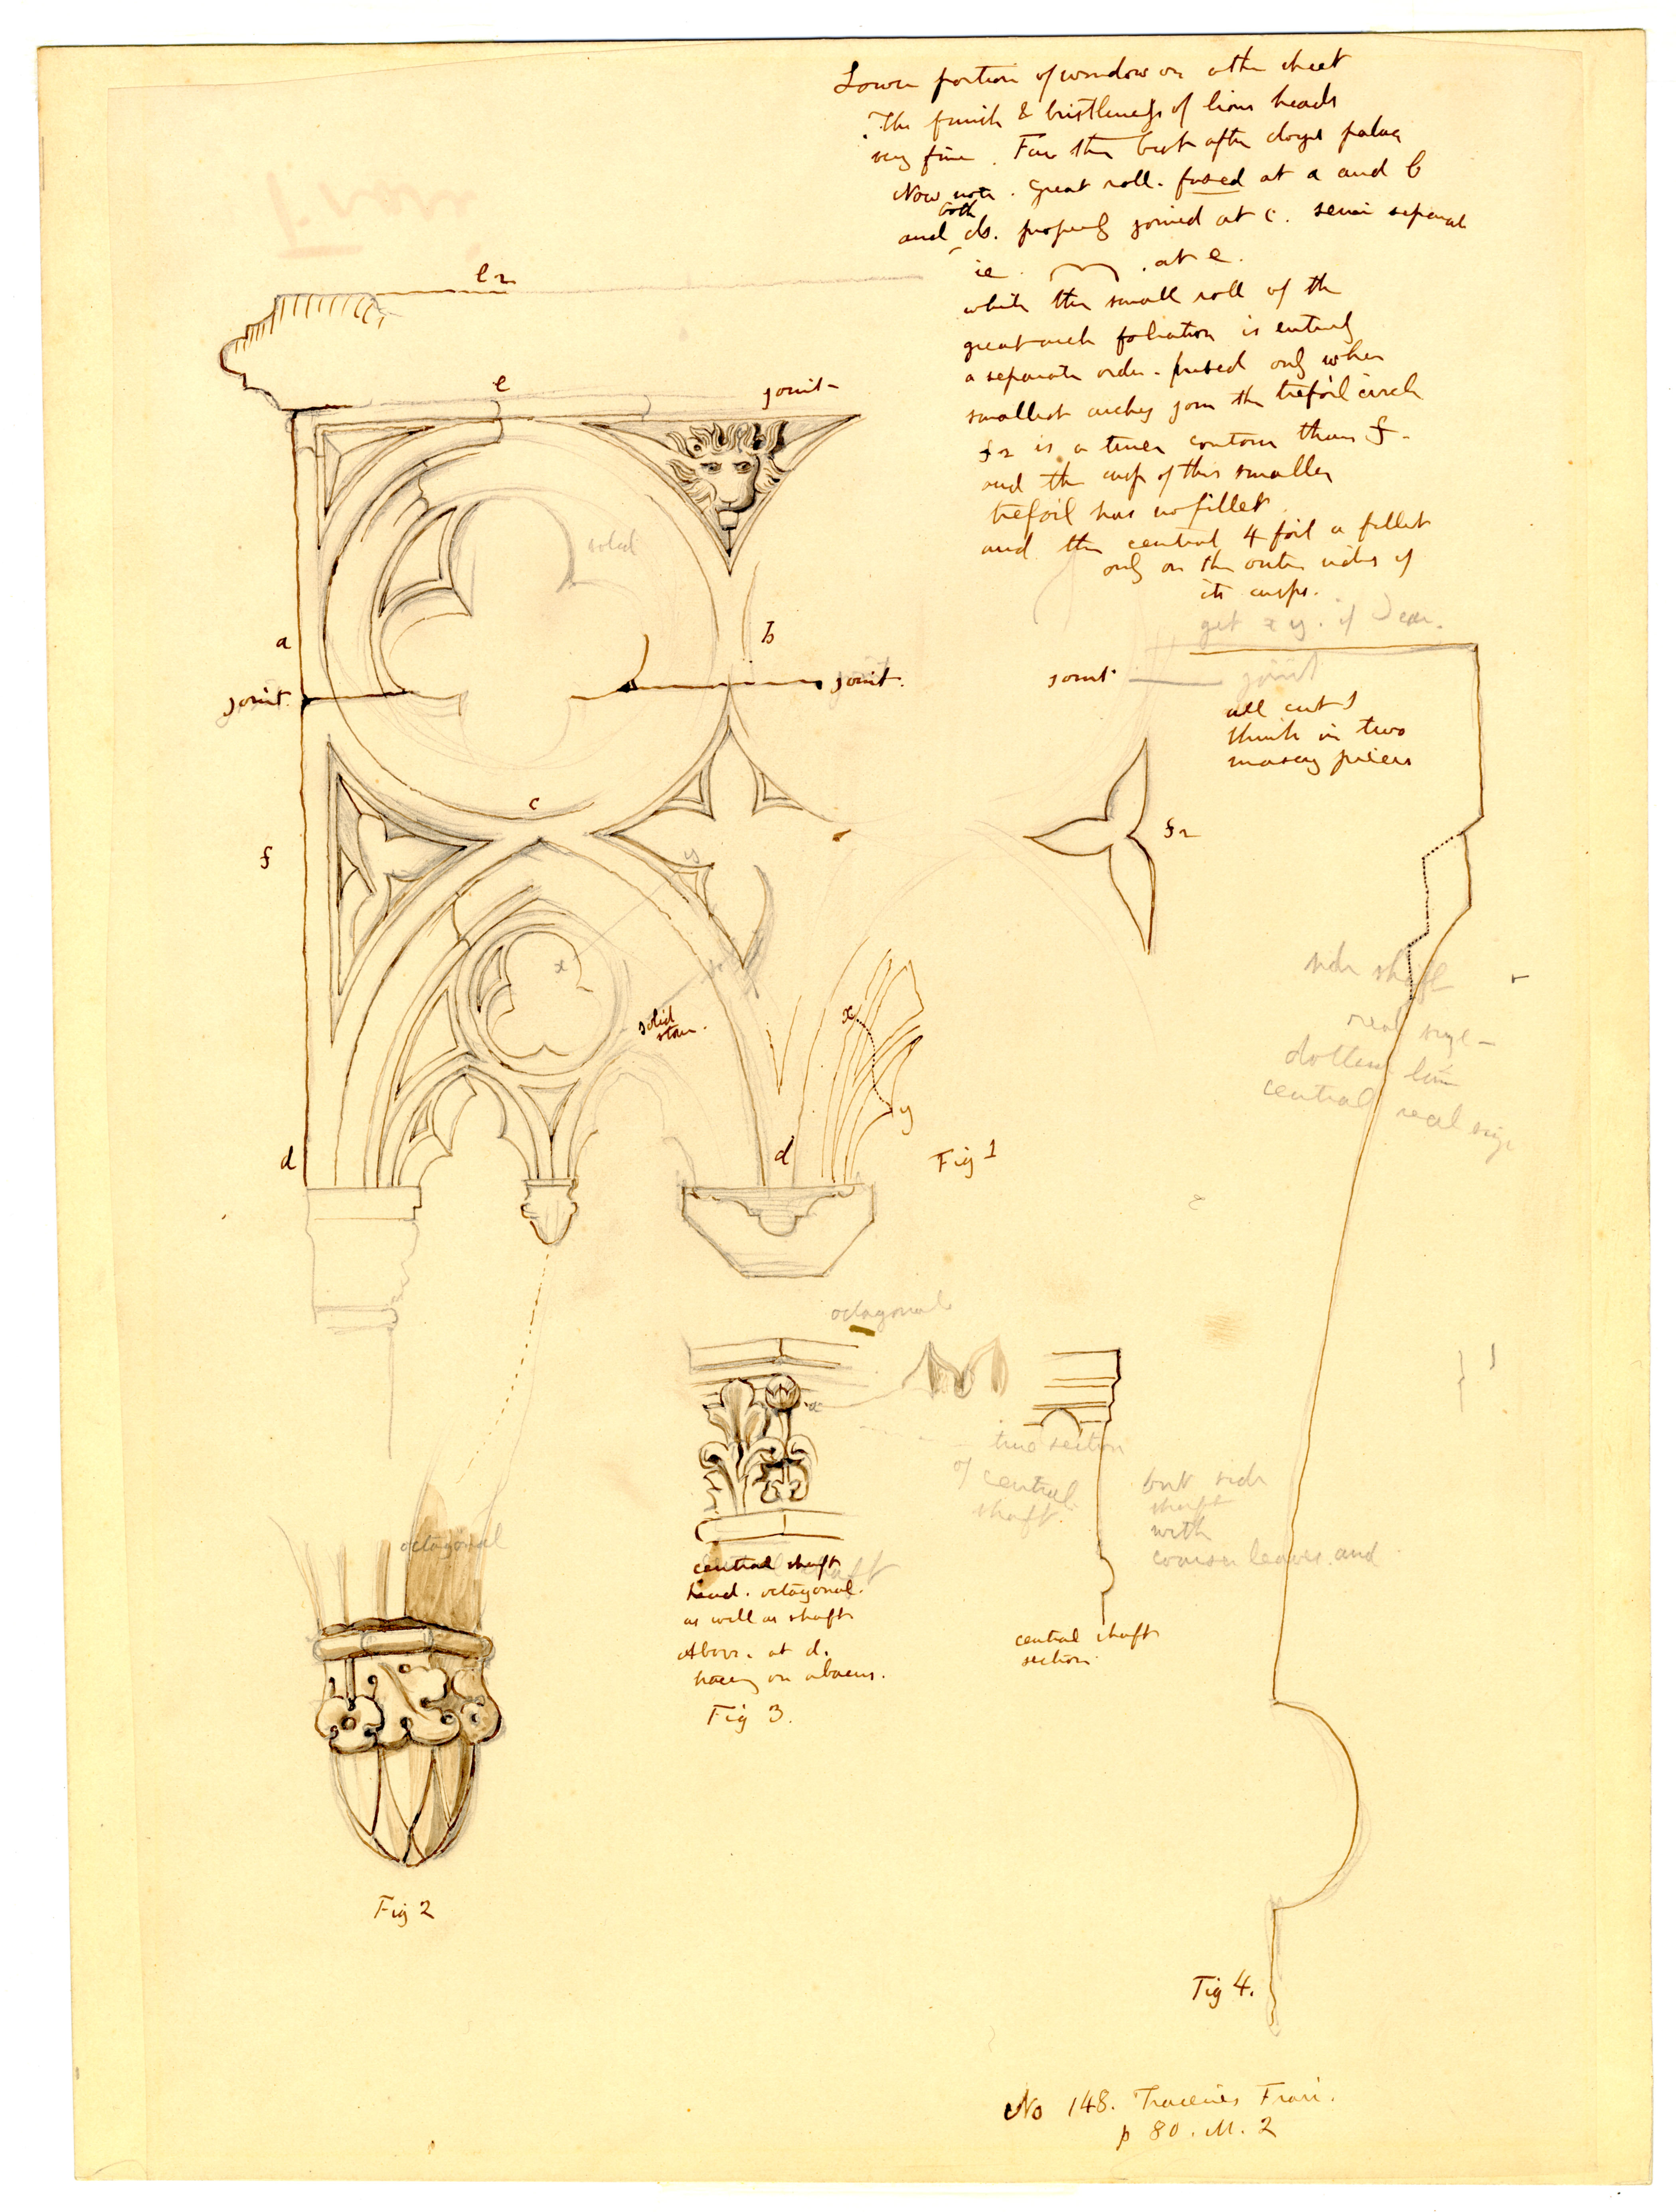 Lower portion of window on other sheet
The finish & bristliness of lions heads
very fine. Far the best after doges palace
Now note. great roll. fused at a and b
both
and ds. properly joined at c. semi separate
ie . at e.
while the small roll of the
great arch foliation is entirely
a separate order. fused only when
smallest arches join the trefoil circle
f 2 is a truer contour than f.
and the cusp of this smaller
trefoil has no fillet
and the central 4 foil a fillet
only on the outer sides of
its cusps.
get x y. if I can.
Frari
e 2
e
joint
solid
a
b
joint.
joint.
joint
joint
all cut I
think in two
massy pieces
c
f
f 2
y
x
solid
stone.
x
y
d
d
Fig 1
side shaft
real size -
dotted line
central real size
octagonal
a
true section
of central
shaft.
but side
shaft
with
coarser leaves. and
octagonal
central shaft
head. octagonal.
as well as shaft
Above. at d.
tracery on abacus.
Fig 3.
central shaft
section.
Fig 2
Fig 4.
No 148. Traceries Frari.
p 80. M. 2